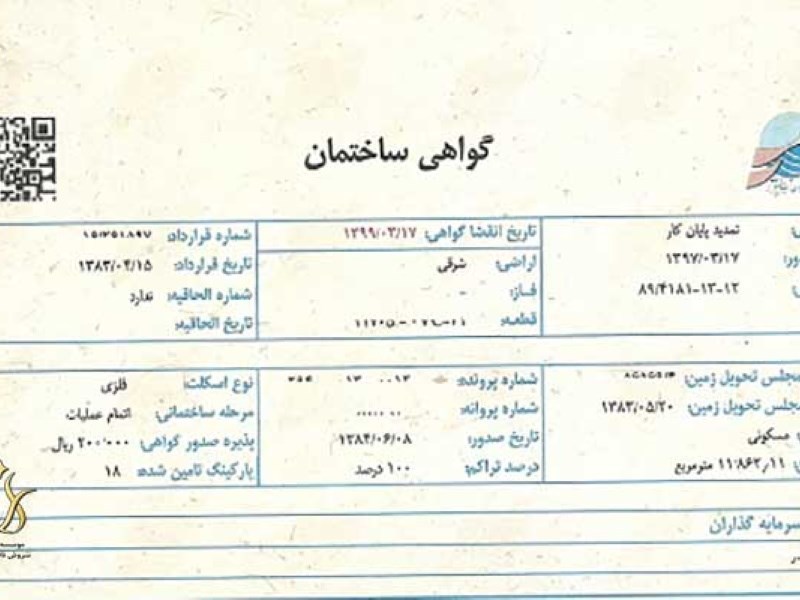 گواهی ساختمان
تمدید پایان کار
تاریخ انقضا گواهی: ۱۳۹۹/۰۳/۱۷
شماره قرارداد:
۱۳۹۷/۰۳/۱۷
اراضی: شرقی
تاریخ قرارداد: ۱۳۸۳/۰۴/۱۵
۸۹/۴۱۸۱-۱۳-۱۲
فاز: -
شماره الحاقیه: ندارد
قطعه:
تاریخ الحاقیه:
مجلس تحویل زمین:
شماره پرونده:
نوع اسکلت: فلزی
مجلس تحویل زمین: ۱۳۸۳/۰۵/۲۰
شماره پروانه:
مرحله ساختمانی: اتمام عملیات
مسکونی
تاریخ صدور: ۱۳۸۴/۰۶/۰۸
پذیره صدور گواهی: ۲۰۰٬۰۰۰ ریال
۱۱٬۸۶۲٫۱۱ مترمربع
درصد تراکم: ۱۰۰ درصد
پارکینگ تامین شده: ۱۸
سرمایه گذاران
موسسه